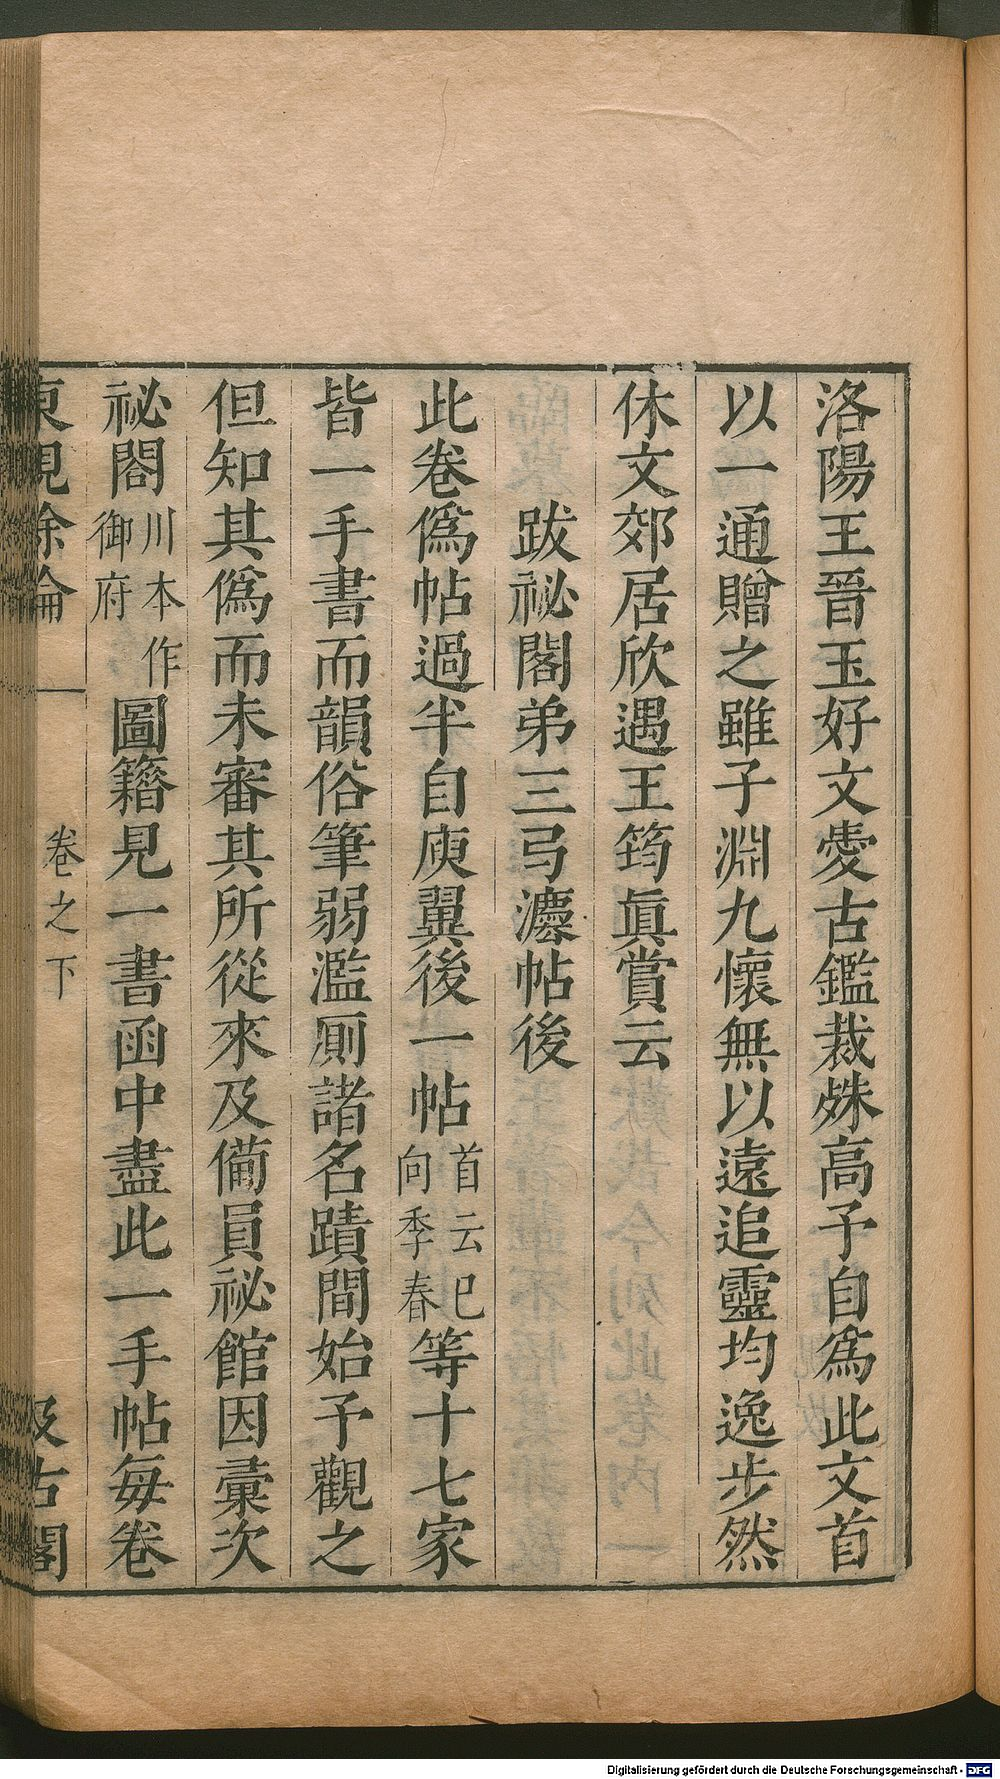 洛陽王晉玉好文愛古鑑裁殊高予自爲此文首
以一通贈之雖子淵九懷無以遠追靈均逸步然
休文郊居欣遇王筠眞賞云
跋祕閣弟三弓灋帖後
此卷僞帖過半自庾翼後一帖首云已向季春等十七家
皆一手書而韻俗筆弱濫厠諸名蹟間始予觀之
但知其僞而未審其所從來及備員祕館因彙次
祕閣川本作御府圖籍見一書函中盡此一手帖每卷
東觀餘論 卷之下 汲古閣
Digitalisierung gefördert durch die Deutsche Forschungsgemeinschaft - DFG